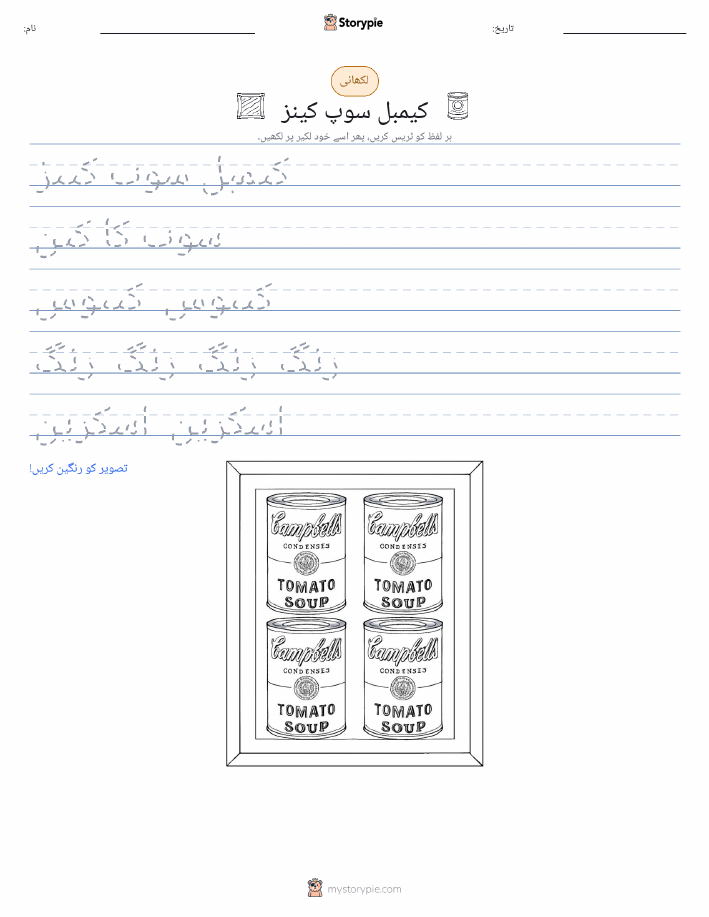 نام:
Storypie
تاریخ:
لکھائی
کیمبل سوپ کینز
ہر لفظ کو ٹریس کریں، پھر اسے خود لکیر پر لکھیں۔
کیمبل سوپ کینز
سوپ کا کین
کینوس کینوس
رنگ رنگ رنگ رنگ
اسکرین اسکرین
تصویر کو رنگین کریں!
Campbell's Campbell's
CONDENSES CONDENSES
TOMATO TOMATO
SOUP SOUP
Campbell's Campbell's
CONDENSES CONDENSES
TOMATO TOMATO
SOUP SOUP
mystorypie.com